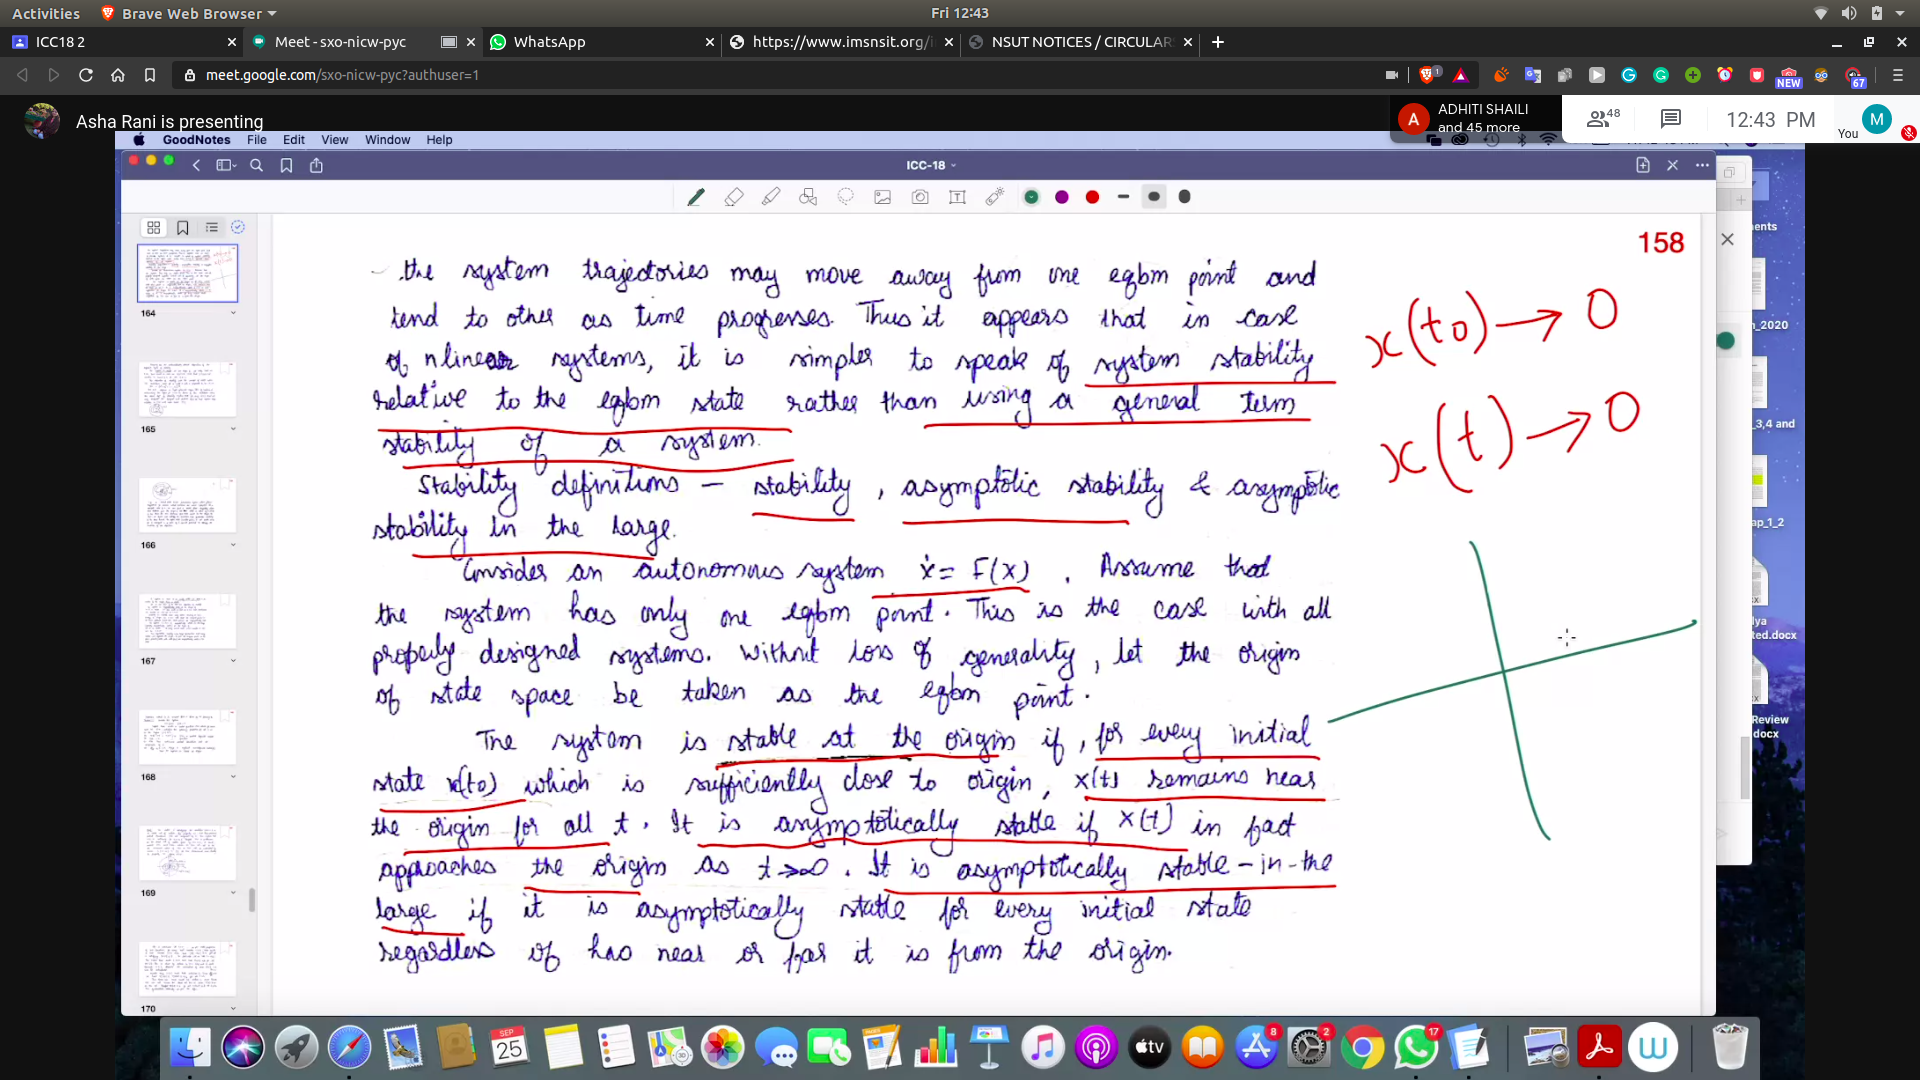 Activities
Brave Web Browser
Fri 12:43
ICC18 2
Meet - sxo-nicw-pyc
WhatsApp
https://www.imsnsit.org/i
NSUT NOTICES / CIRCULARS
meet.google.com/sxo-nicw-pyc?authuser=1
1
NEW
67
Asha Rani is presenting
A
ADHITI SHAILI
and 45 more
48
12:43 PM
You
M
GoodNotes File Edit View Window Help
ICC-18
158
the system trajectories may move away from one eqbm point and
tend to other as time progresses. Thus it appears that in case
of nlinear systems, it is simpler to speak of system stability
relative to the eqbm state rather than using a general term
stability of a system.
Stability definitions – stability, asymptotic stability & asymptotic
stability in the large.
Consider an autonomous system ẋ = F(x). Assume that
the system has only one eqbm point. This is the case with all
properly designed systems. Without loss of generality, let the origin
of state space be taken as the eqbm point.
The system is stable at the origin if, for every initial
state x(t0) which is sufficiently close to origin, x(t) remains near
the origin for all t. It is asymptotically stable if x(t) in fact
approaches the origin as t→∞. It is asymptotically stable-in-the
large if it is asymptotically stable for every initial state
regardless of has near or far it is from the origin.
x(t0) → 0
x(t) → 0
164
165
166
167
168
169
170
ments
n_2020
_3,4 and
ap_1_2
lya
ted.docx
Review
docx
SEP
25
tv
8
2
17
W